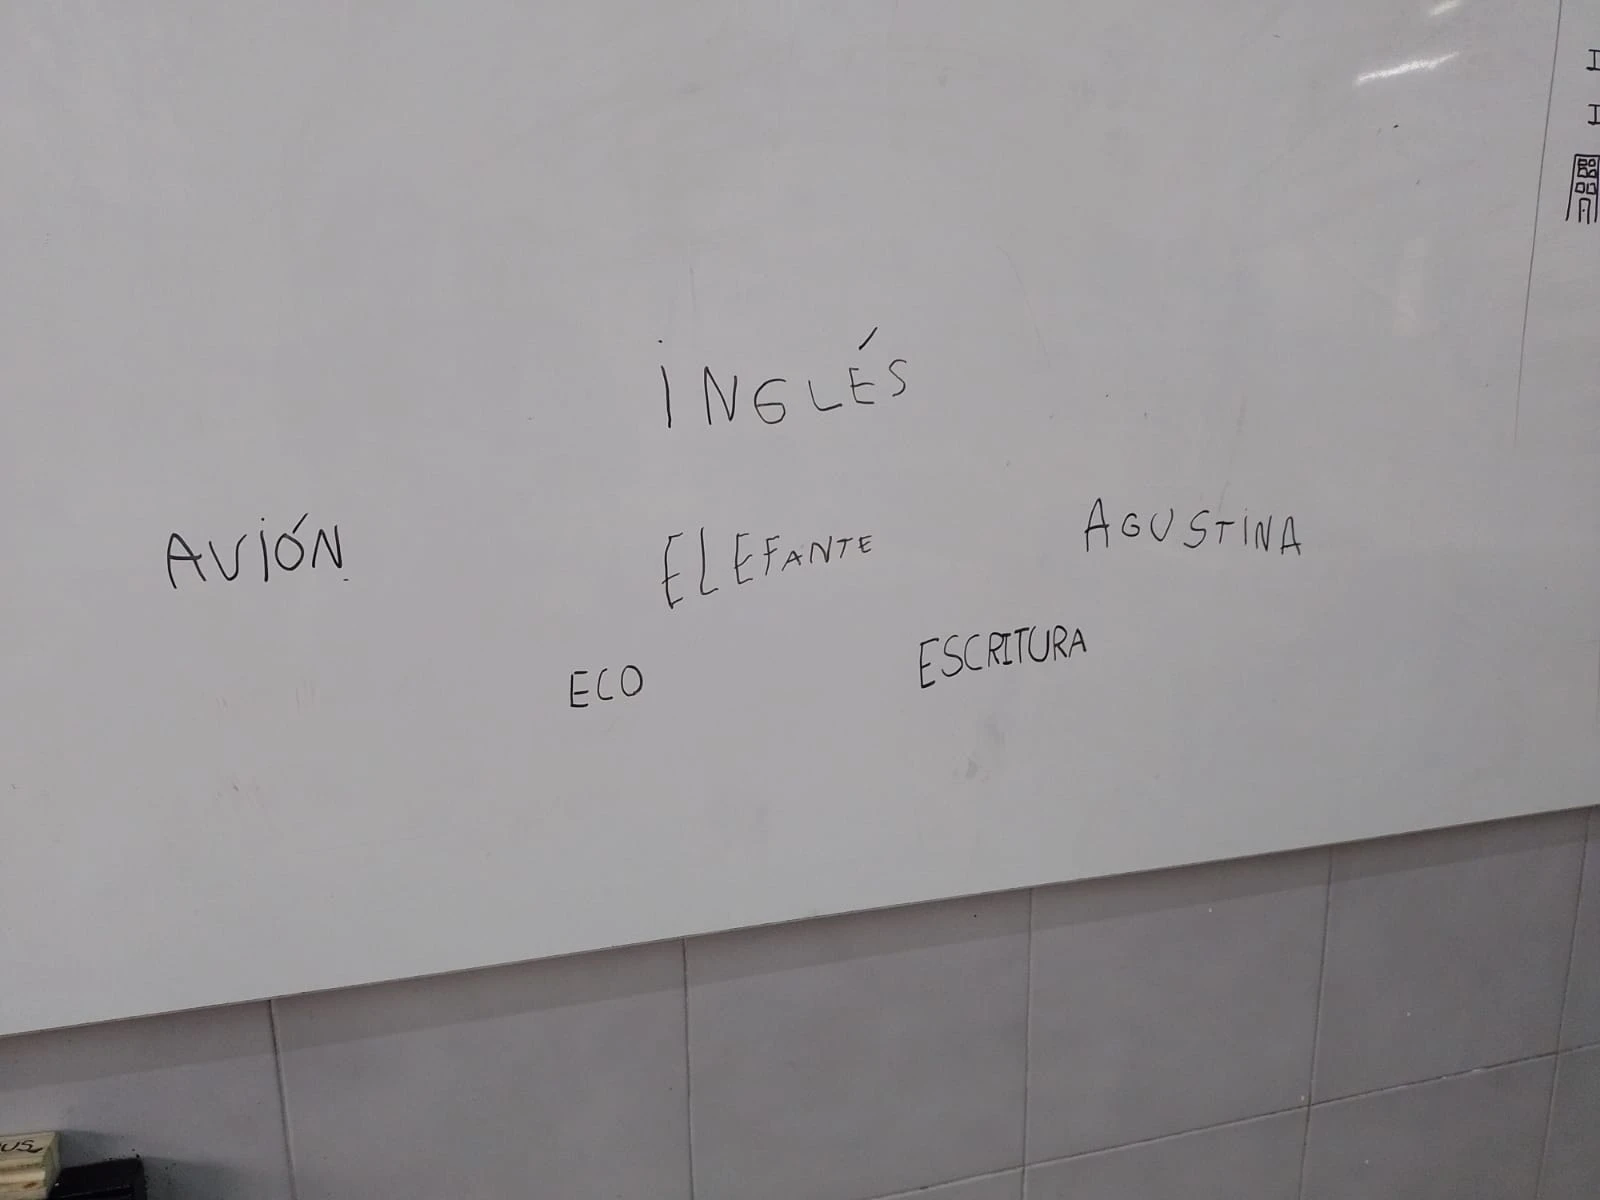 INGLÉS
AVIÓN
ELEFANTE
AGUSTINA
ECO
ESCRITURA